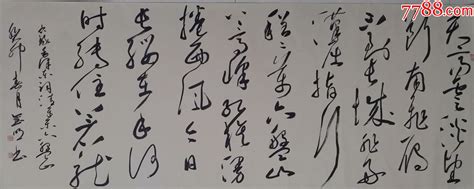 7788.com
天高云淡望
断南飞雁
不到长城非好
汉屈指行
程二万六盘山
上高峰红旗漫
卷西风今日
长缨在手何
时缚住苍龙
毛泽东词清平乐六盘山
癸卯春月 书